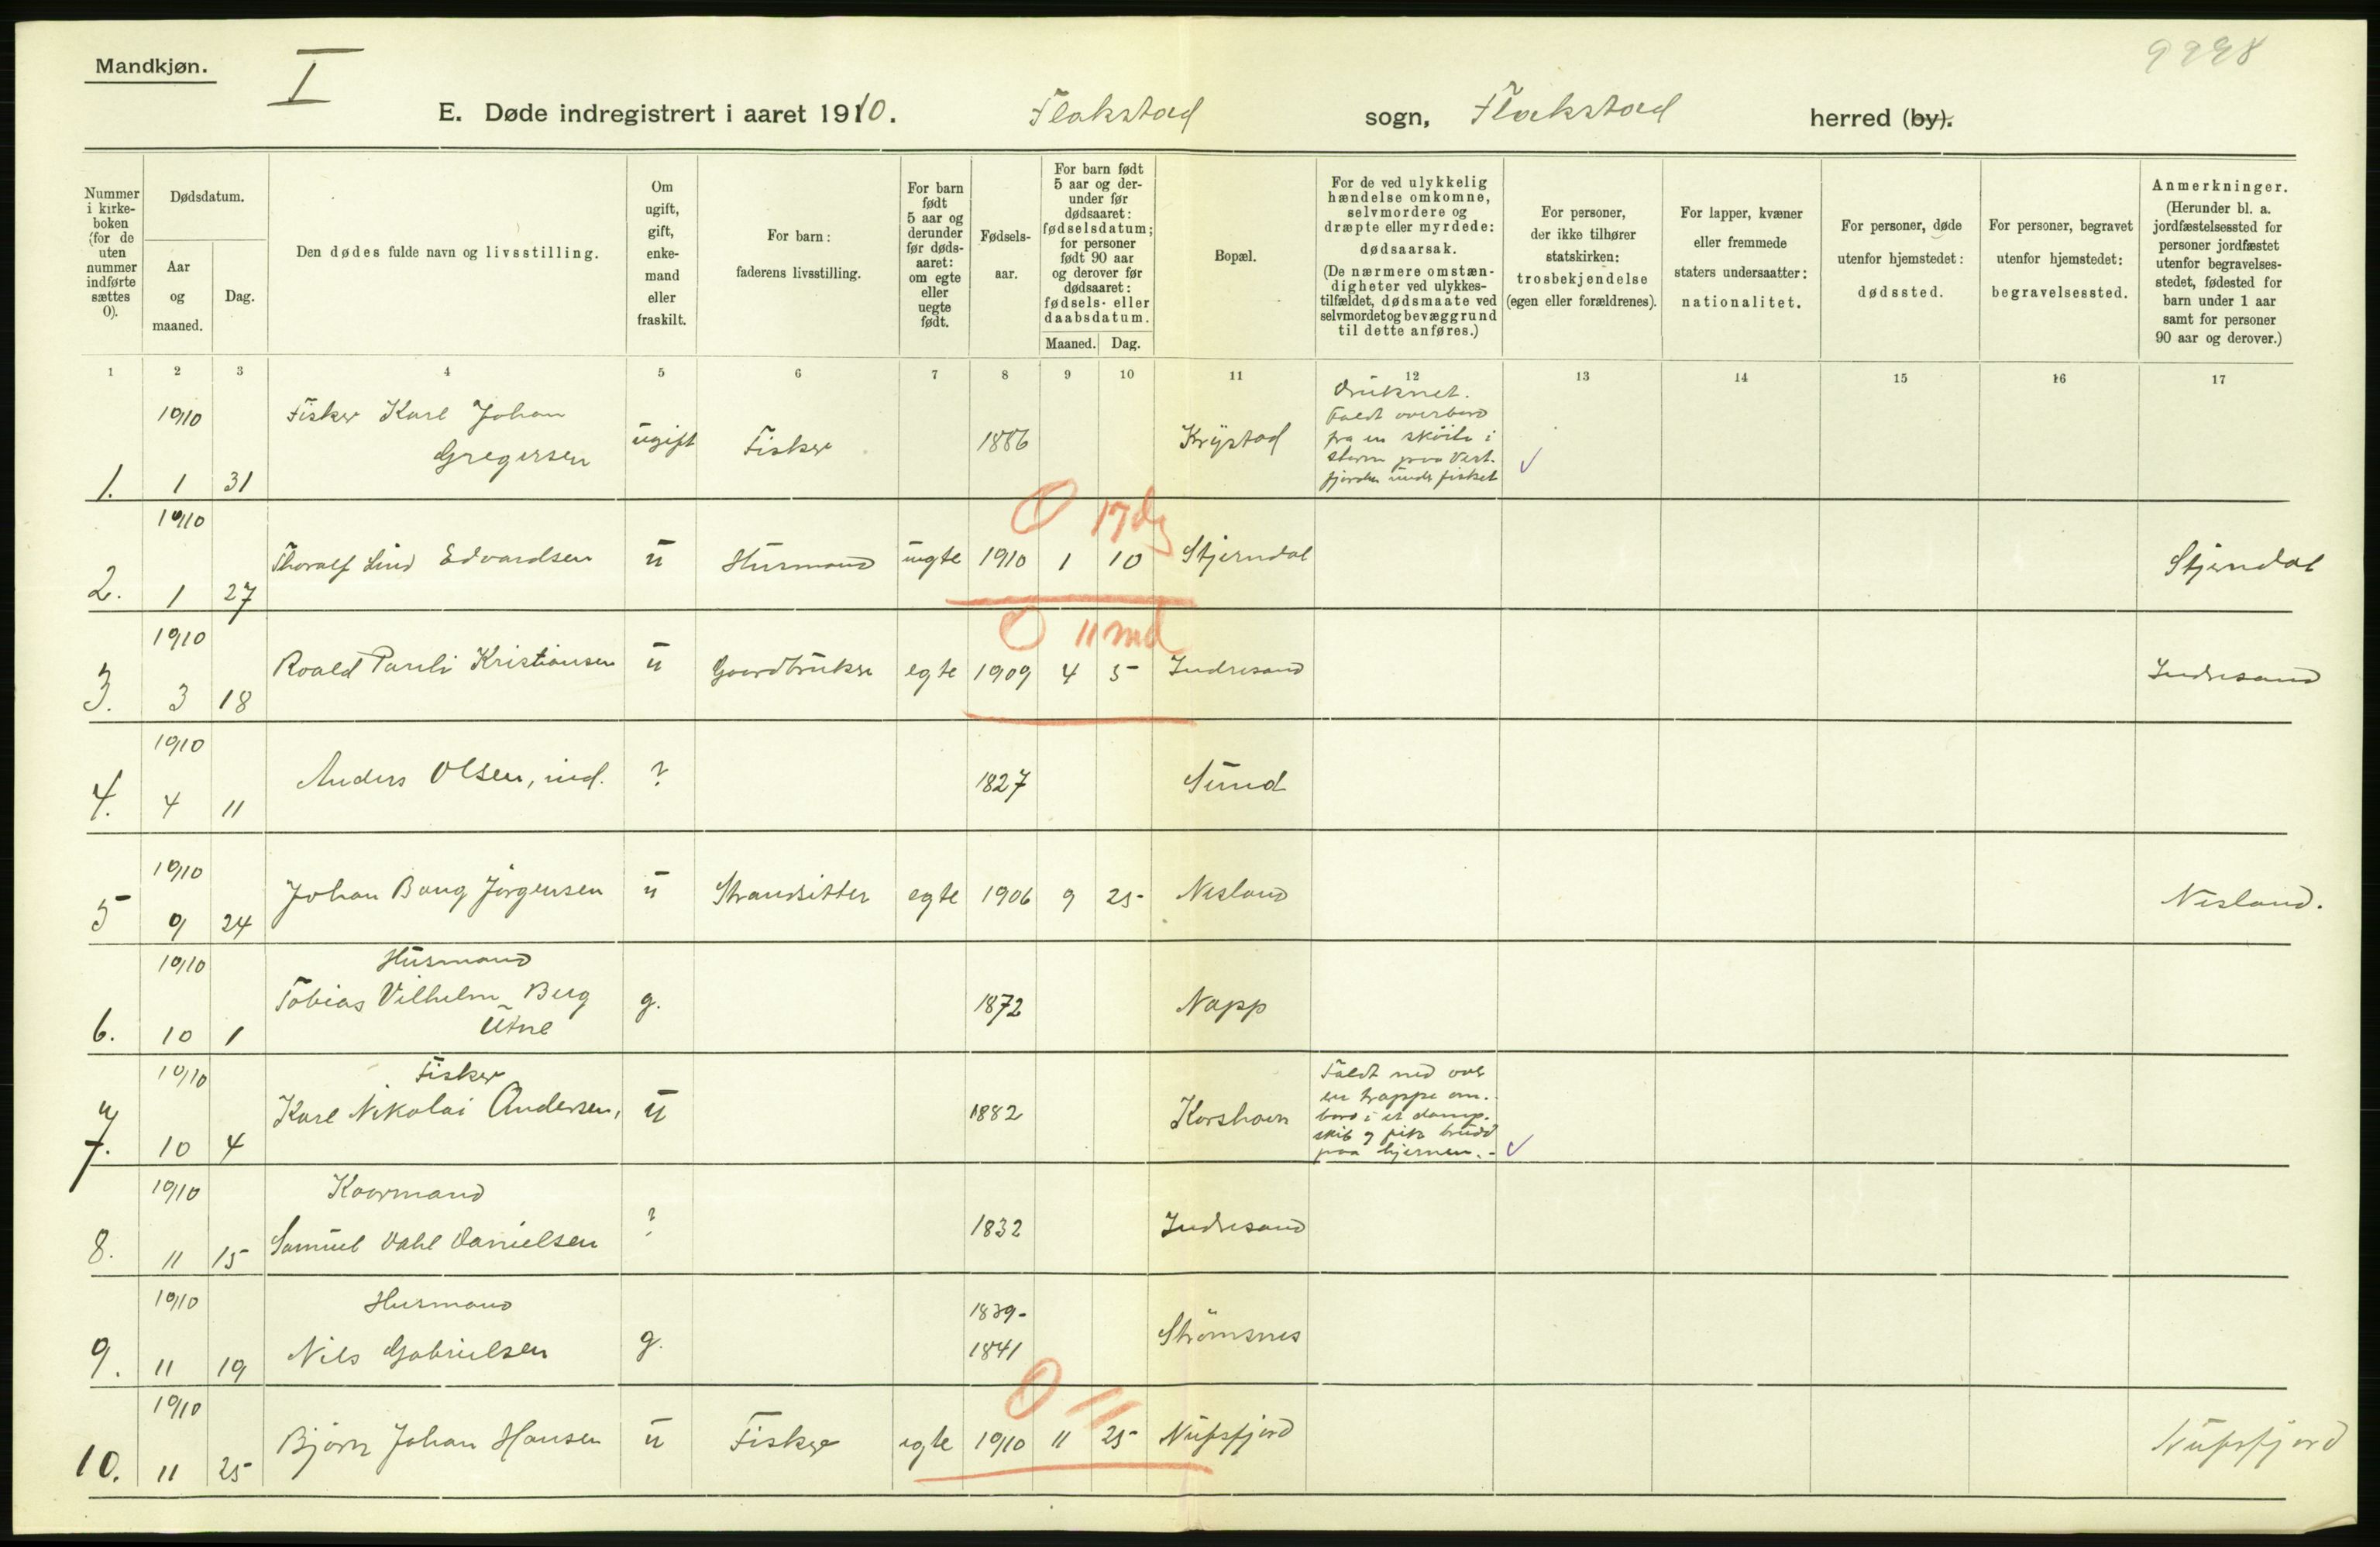 Mandkjøn.
I
9998
E. Døde indregistrert i aaret 1910. Flakstad sogn, Flakstad herred (by).
Nummer i kirkeboken (for de uten nummer indførte sættes 0).
Dødsdatum.
Aar og maaned.
Dag.
Den dødes fulde navn og livsstilling.
Om ugift, gift, enkemand eller fraskilt.
For barn: faderens livsstilling.
For barn født 5 aar og derunder før dødsaaret: om egte eller uegte født.
Fødselsaar.
For barn født 5 aar og derunder før dødsaaret: fødselsdatum; for personer født 90 aar og derover før dødsaaret: fødsels- eller daabsdatum.
Maaned. Dag.
Bopæl.
For de ved ulykkelig hændelse omkomne, selvmordere og dræpte eller myrdede: dødsaarsak. (De nærmere omstændigheter ved ulykkestilfældet, dødsmaate ved selvmordet og bevæggrund til dette anføres.)
For personer, der ikke tilhører statskirken: trosbekjendelse (egen eller forældrenes).
For lapper, kvæner eller fremmede staters undersaatter: nationalitet.
For personer, døde utenfor hjemstedet: dødssted.
For personer, begravet utenfor hjemstedet: begravelsessted.
Anmerkninger. (Herunder bl. a. jordfæstelsessted for personer jordfæstet utenfor begravelsesstedet, fødested for barn under 1 aar samt for personer 90 aar og derover.)
1 2 3 4 5 6 7 8 9 10 11 12 13 14 15 16 17
1. 1910 1 31 Fisker Karl Johan Gregersen ugift Fisker 1886 Krystad Druknet. Faldt overbord fra en skøite i storm paa Vestfjorden under fisket
0 17 dg
2. 1910 1 27 Thoralf Lind Edvardsen u Husmand uegte 1910 1 10 Stjerndal Stjerndal
0 11 md
3. 1910 3 18 Roald Pareli Kristiansen u Gaardbruker egte 1909 4 5 Indresand Indresand
4. 1910 4 11 Anders Olsen, ind. ? 1827 Sund
5 1910 9 24 Johan Bang Jörgensen u Strandsitter egte 1906 9 25 Nesland Nesland.
6. 1910 10 1 Husmand Tobias Vilhelm Berg Utne g. 1872 Napp
7. 1910 10 4 Fisker Karl Nikolai Andersen, u 1882 Korshavn Faldt ned over en trappe ombord i et dampskib og fik brudd paa hjernen.
8. 1910 11 15 Kaarmand Samuel Dahl Danielsen ? 1832 Indresand
9. 1910 11 19 Husmand Nils Gabrielsen g. 1839- 1841 Strömsnes
0 11
10. 1910 11 25 Björn Johan Hansen u Fisker egte 1910 11 25 Nufsfjord Nufsfjord